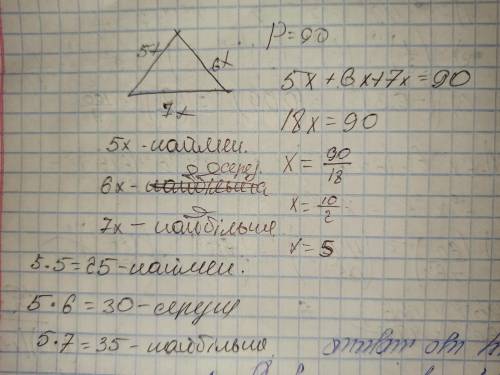 P=90
5x 6x
7x
5x+6x+7x=90
18x=90
x=90/18
x=10/2
x=5
5x - наймен.
осеред.
6x -
7x - найбільше
5·5=25 - наймен.
5·6=30 - середнє
5·7=35 - найбільше